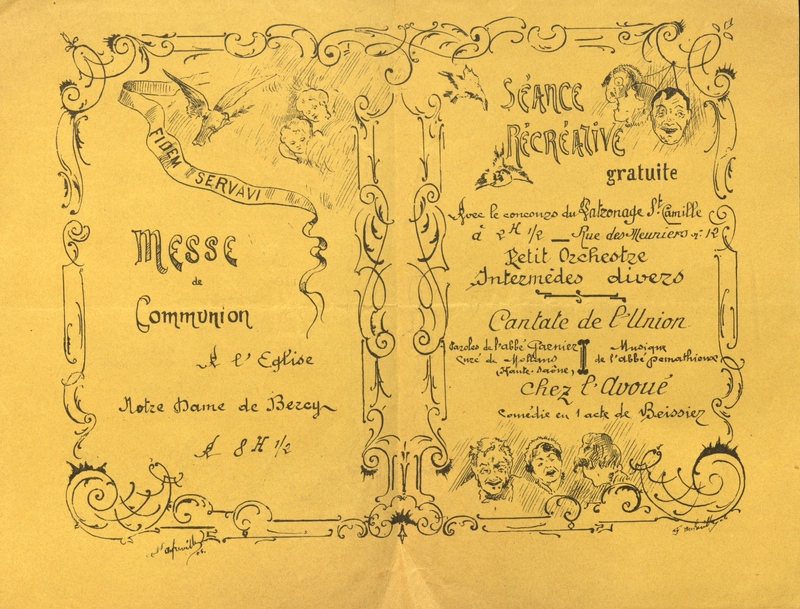 FIDEM SERVAVI
MESSE
de
Communion
A l'Eglise
Notre Dame de Bercy
A 8 H 1/2
SÉANCE
RÉCRÉATIVE
gratuite
Avec le concours du Patronage St Camille
à 2 H 1/2 — Rue des Meuniers n° 12
Petit Orchestre
Intermèdes divers
Cantate de l'Union
Paroles de l'abbé Garnier
Curé de Mollans
(Haute-Saône)
Musique
de l'abbé
Chez l'Avoué
Comédie en 1 acte de Beissier